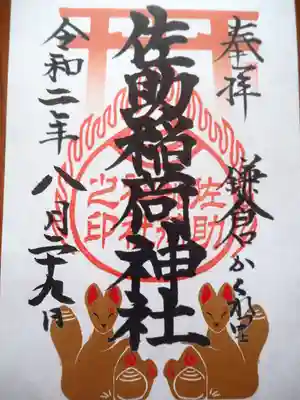 奉拝
鎌倉かくれ里
佐助稲荷神社
令和二年
八月二十九日
佐助
之印